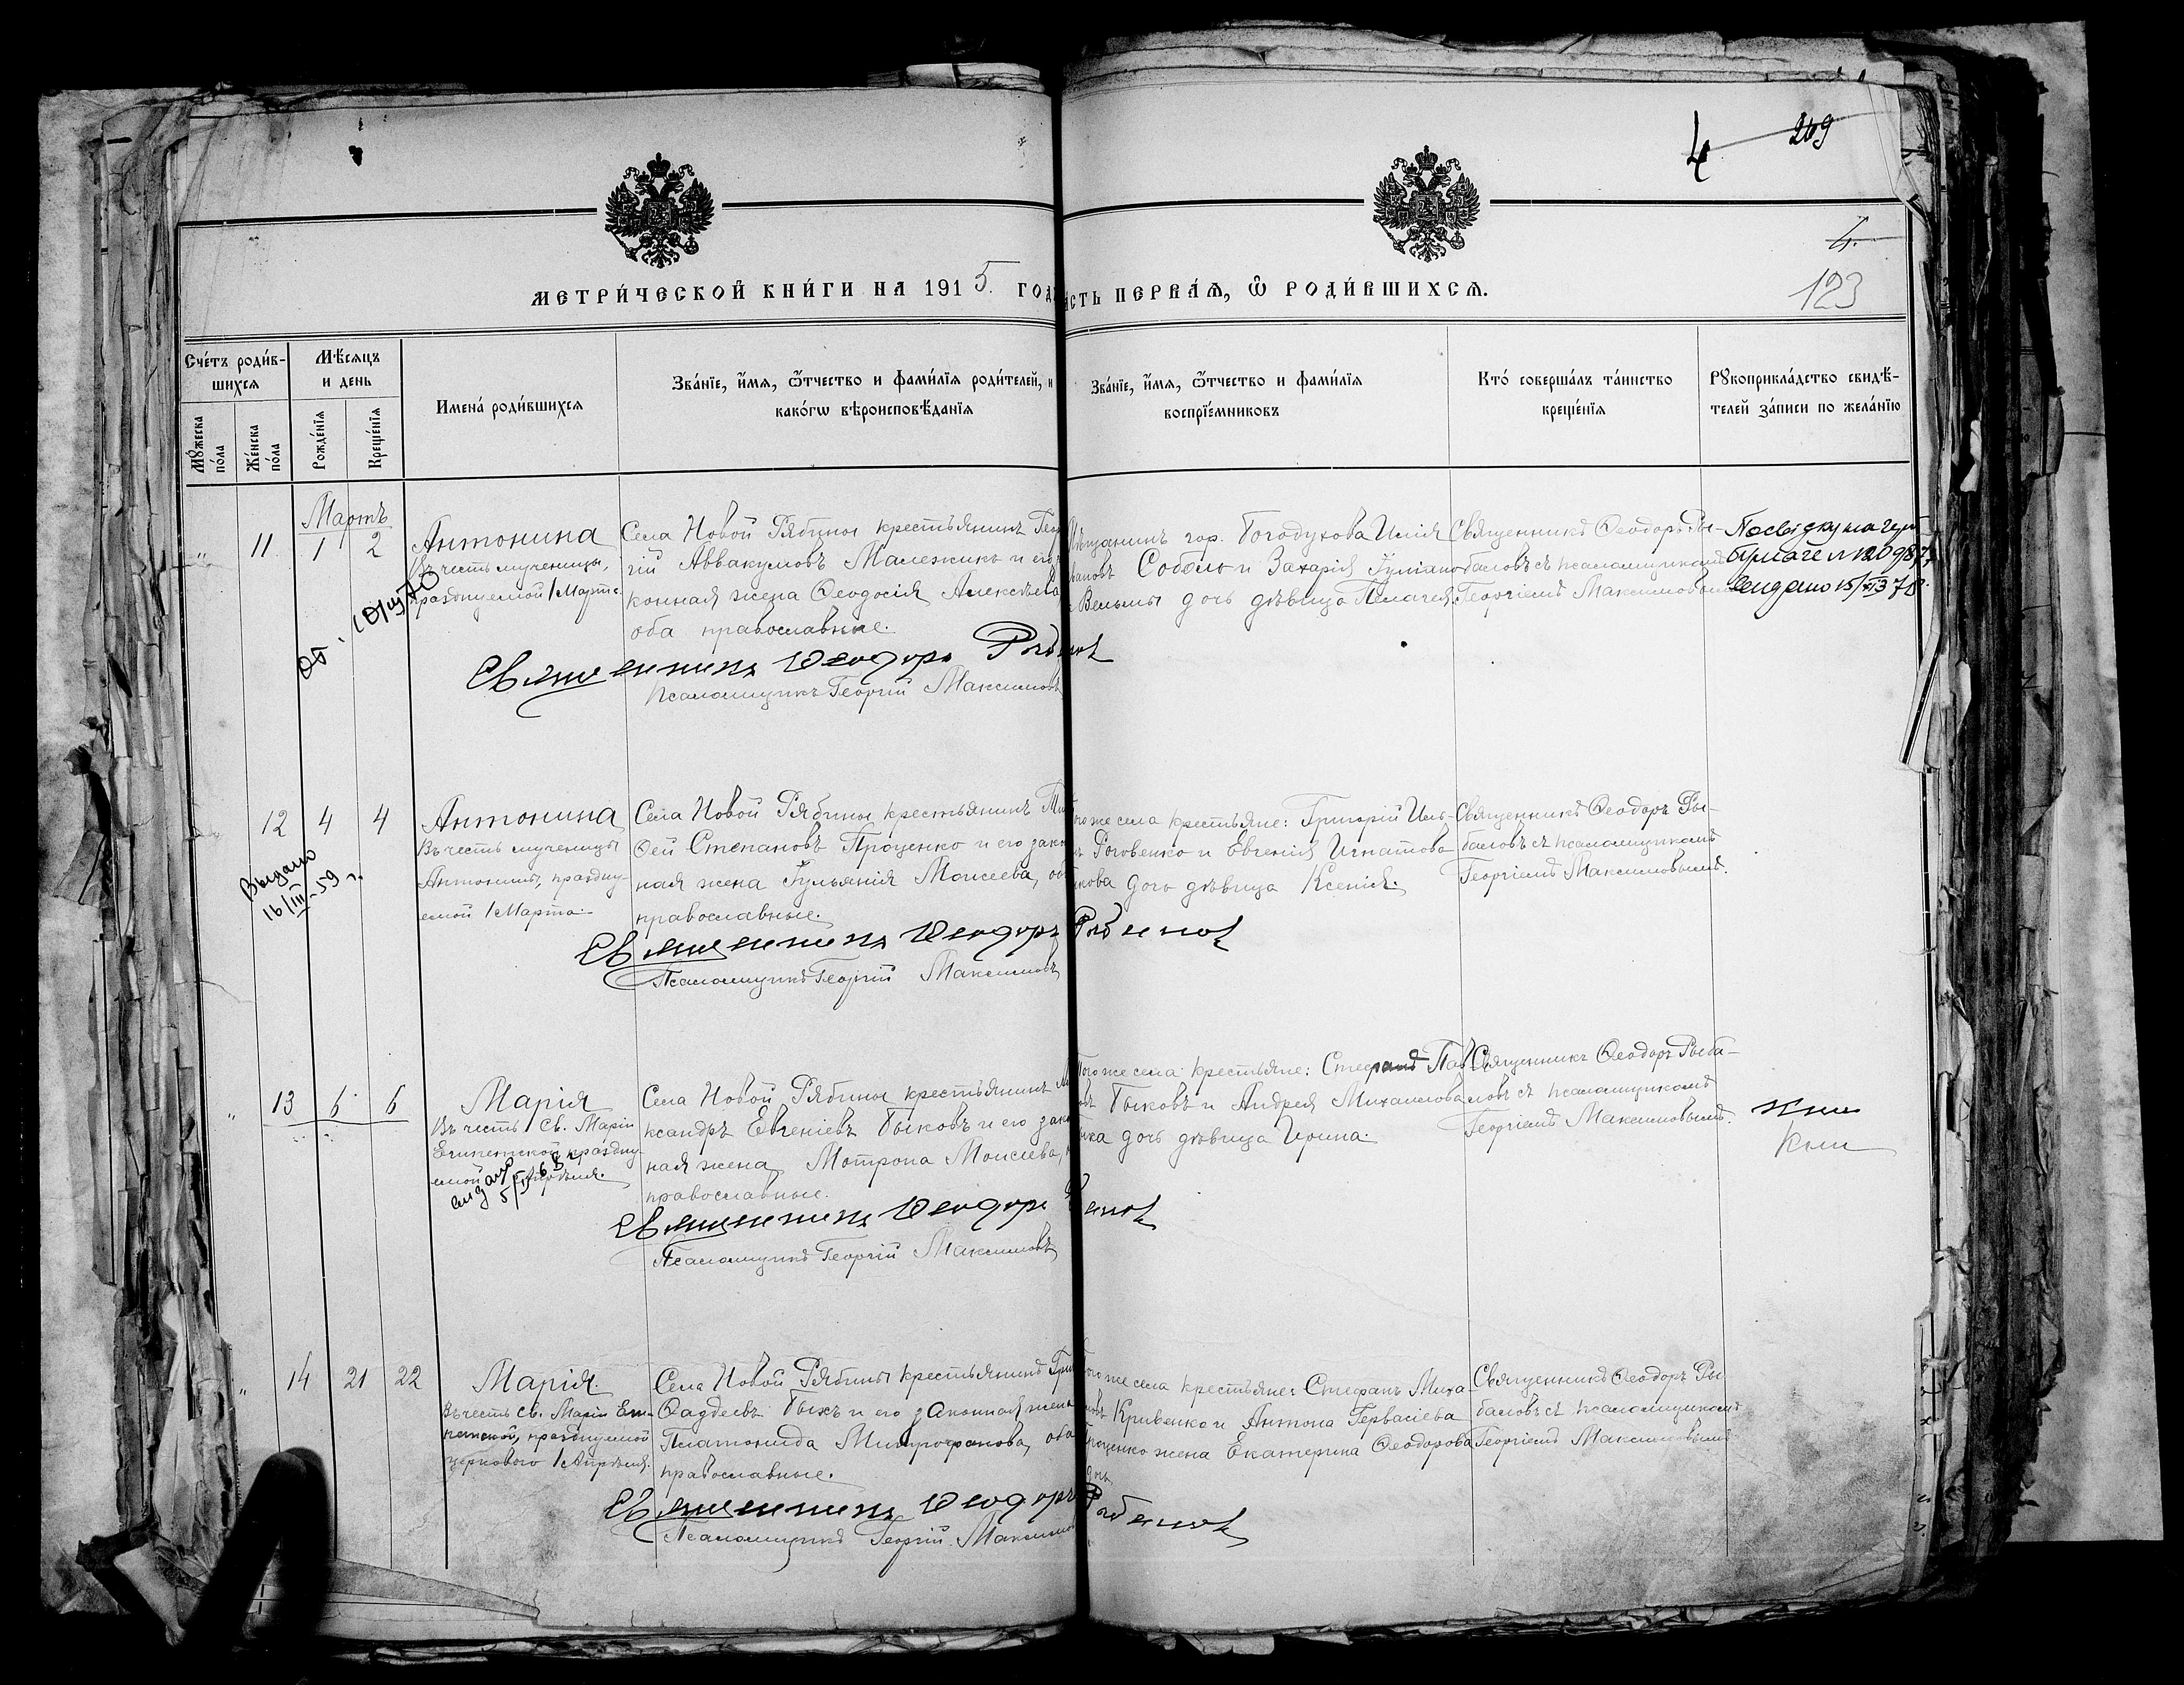 4 269
4.
123
МЕТРИ́ЧЕСКОЙ КНИ́ГИ НА 1915. ГОД
СТЬ ПЕРВА́Ѧ, Ѿ РОДИ́ВШИХСѦ.
Сче́тъ роди́в-
шихсѧ
Мѣ́сѧцъ
и день
Имена́ роди́вшихсѧ
Зва́нїе, и҆́мѧ, ѻ҆́тчество и фами́лїѧ роди́телей, и
како́гѡ вѣроисповѣ́данїѧ
Зва́нїе, и҆́мѧ, ѻ҆́тчество и фами́лїѧ
воспрїе́мниковъ
Кто̀ соверша́лъ та́инство
креще́нїѧ
Рꙋкоприкла́дство свидѣ́-
телей за́писи по жела́нїю
Мꙋ́жеска
по́ла
Же́нска
по́ла
Рожде́нїѧ
Креще́нїѧ
Мартъ
11 1 2
Антонина
Въ честь мученицы,
празднуемой 1 Марта.
Села Новой Рябины крестьянинъ Геор
гій Аввакумовъ Малежикъ и его
конная жена Ѳеодосія Алексѣева
оба православные.
Священникъ Ѳеодоръ
Псаломщикъ Георгій Максимовъ
ѣщанинъ гор. Богодухова Илія
вановъ Соболь и Захарія Іуліано
Вельмы дочь дѣвица Пелагея.
Священникъ Ѳеодоръ Ры-
баловъ съ псаломщикомъ
Георгіемъ Максимовымъ
12 4 4
Антонина
Въ честь мученицы
Антонины, праздну-
емой 1 Марта.
Выдано
16/III-59 г.
Села Новой Рябины крестьянинъ Тимо
ѳей Степановъ Проценко и его закон
ная жена Іульянія Моисеева, об
православные.
Священникъ Ѳеодоръ
Псаломщикъ Георгій Максимовъ
ого же села крестьяне: Григорій Иль-
Роговенко и Евгенія Игнатова
кова дочь дѣвица Ксенія.
Священникъ Ѳеодоръ Ры-
баловъ съ псаломщикомъ
Георгіемъ Максимовымъ.
13 6 6
Марія
Въ честь Св. Маріи
Египетской, праздну-
емой 1 Апрѣля.
Села Новой Рябины крестьянинъ Але
ксандръ Евгеніевъ Быковъ и его закон
ная жена Мотрона Моисеева,
православные.
Священникъ Ѳеодоръ
Псаломщикъ Георгій Максимовъ
Того же села крестьяне: Стефанъ Пав
овъ Быковъ и Андрея Михаилова
ика дочь дѣвица Ирина.
Священникъ Ѳеодоръ Рыба-
ловъ съ псаломщикомъ
Георгіемъ Максимовымъ.
14 21 22
Марія
Въ честь Св. Маріи Еги-
петской, празднуемой
церковью 1 Апрѣля.
Села Новой Рябины крестьянинъ Гри
Ѳаддеевъ Быкъ и его законная жена
Платонида Митрофанова, оба
православные.
Священникъ Ѳеодоръ
Псаломщикъ Георгій Максимо
ого же села крестьяне: Стефанъ Миха-
Кривенко и Антона Гервасіева
Проценко жена Екатерина Ѳеодорова
дочь
Священникъ Ѳеодоръ Ры-
баловъ съ псаломщикомъ
Георгіемъ Максимовымъ